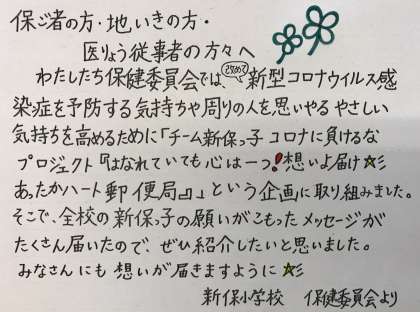 保ご者の方・地いきの方・
医りょう従事者の方々へ
わたしたち保健委員会では、新型コロナウイルス感
染症を予防する気持ちや周りの人を思いやるやさしい
気持ちを高めるために「チーム新保っ子コロナに負けるな
プロジェクト『はなれていても心は一つ!想いよ届け☆彡
あったかハート郵便局』」という企画に取り組みました。
そこで、全校の新保っ子の願いがこもったメッセージが
たくさん届いたので、ぜひ紹介したいと思いました。
みなさんにも想いが届きますように☆彡
新保小学校 保健委員会より